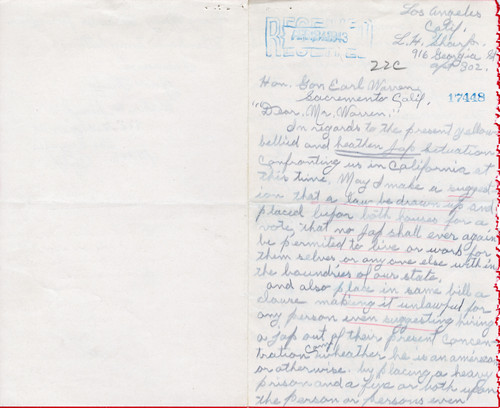 Los Angeles
Calif,
L. H. Sharp.
916 Georgia St
apt 302.
RECEIVED
1943
RECEIVED
22C
Hon. Gov Earl Warren,
Sacramento Calif,
17448
"Dear, Mr. Warren."
In regards to the present yellow
bellied and heathen Jap situation
confronting us in California at
this time, May I make a suggest
ion that a law be drawn up and
placed befor both houses for a
vote, that no Jap shall ever again
be permitted to live or work for
them selves or any one else with in
the boundries of our state,
and also place in same bill a
clause making it unlawful for
any person even suggesting hiring
a Jap out of their present Concen-
tration Camp wheather he is an american
or otherwise. by placing a heavy
prison and a fine or both upon
the person or persons even